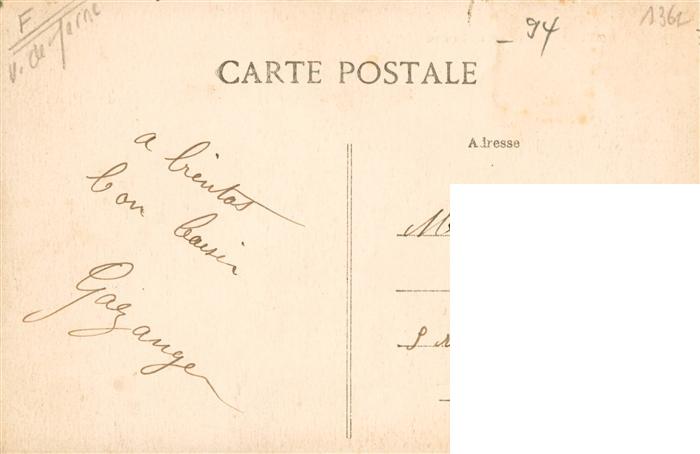 F
V. de Marne
- 94
1362
CARTE POSTALE
Adresse
a bientot
bon baiser
M
S